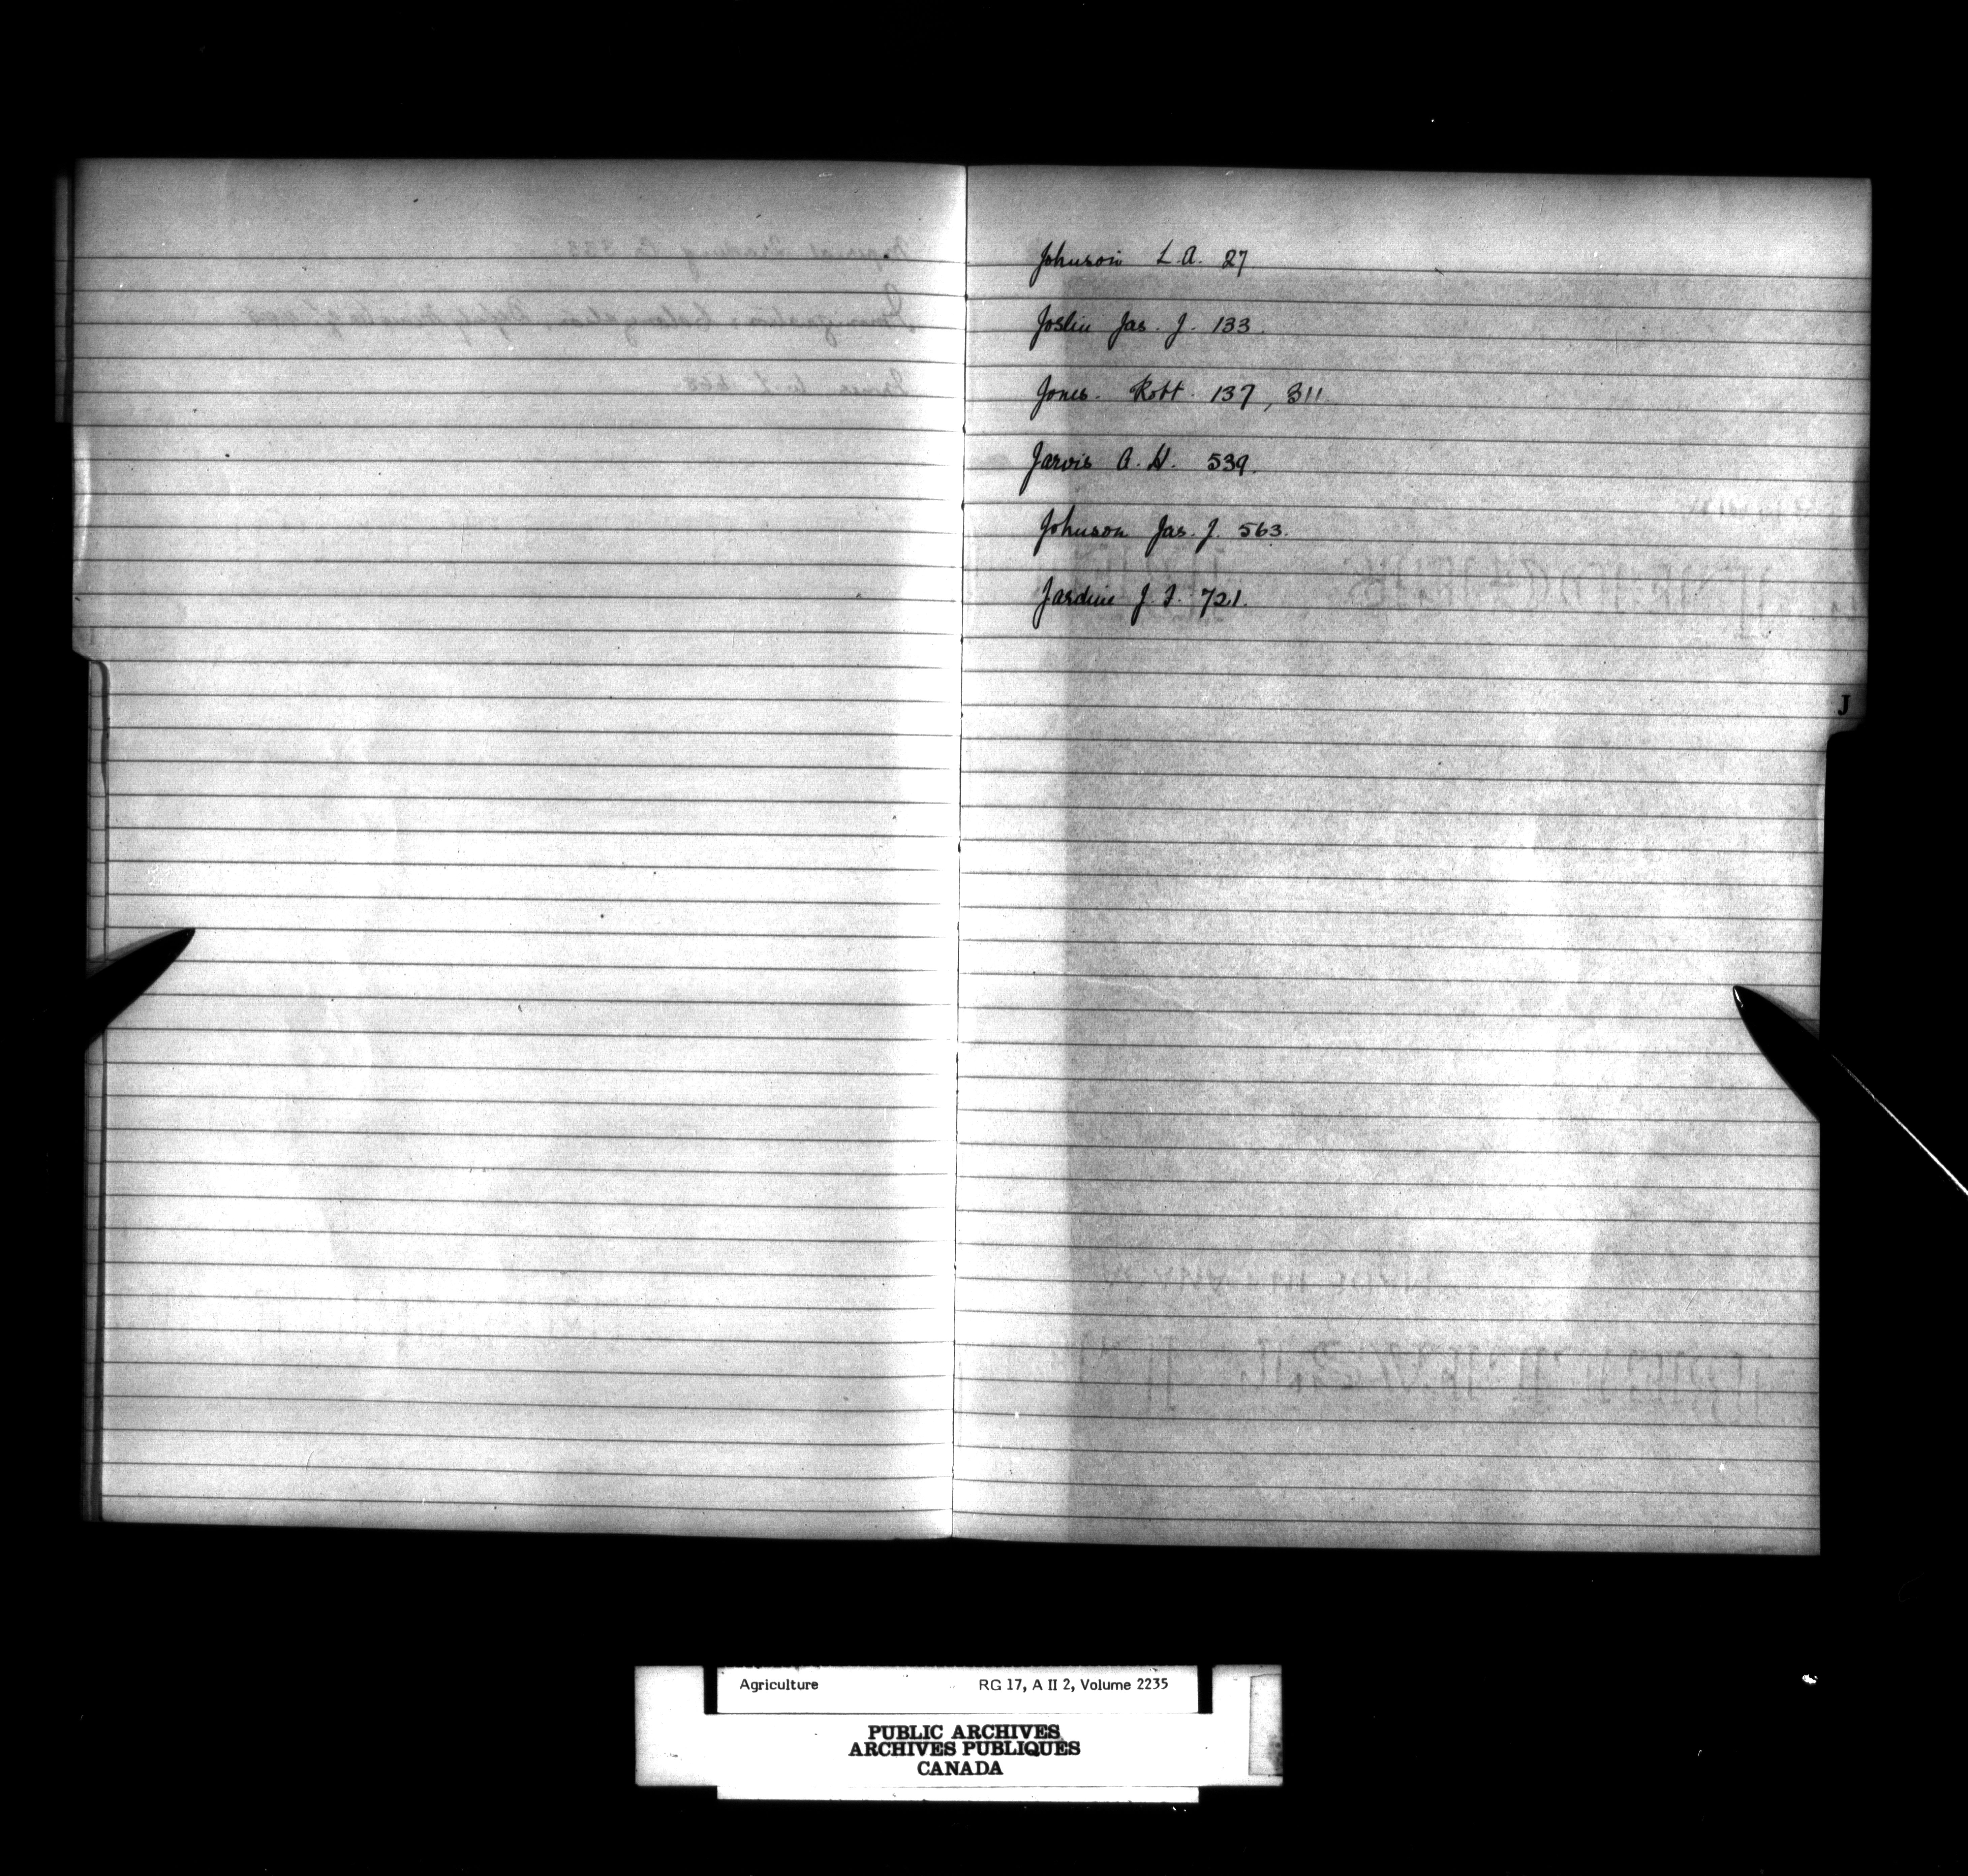 Johnson L.A. 27
Joslin Jas. J. 133.
Jones. Robt. 137, 311
Jarvis A.H. 539.
Johnson Jas. J. 563.
Jardine J. F. 721.
J
Agriculture RG 17, A II 2, Volume 2235
PUBLIC ARCHIVES
ARCHIVES PUBLIQUES
CANADA